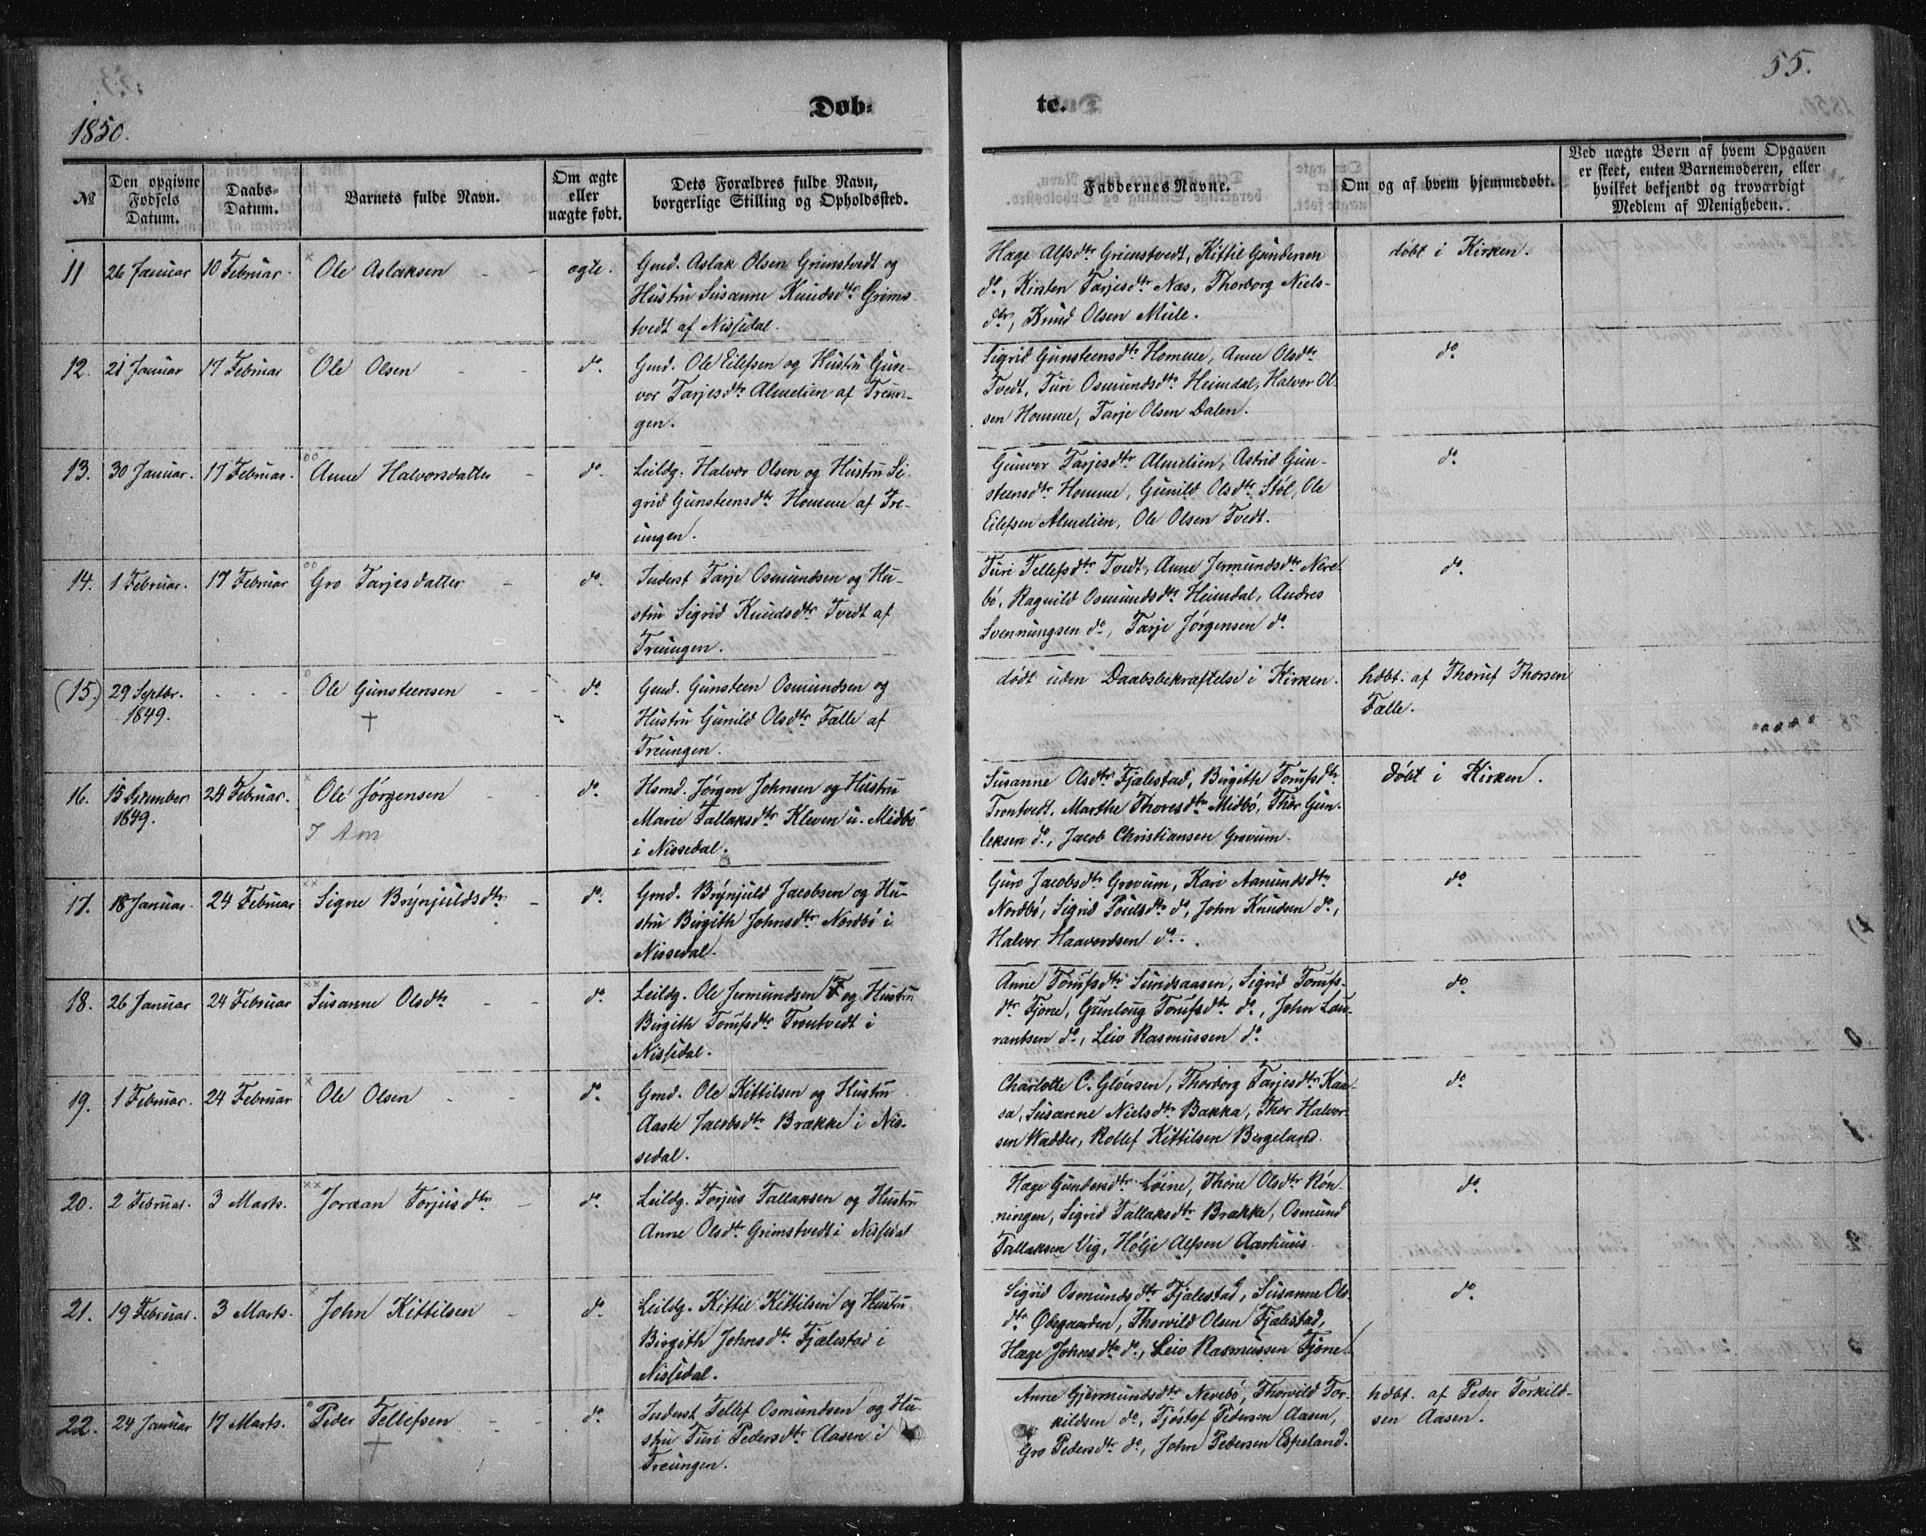 55.
Döb-
te.
1850.
№
Den opgivne Fødsels Datum.
Daabs-Datum.
Barnets fulde Navn.
Om ægte eller uægte født.
Dets Forældres fulde Navn, borgerlige Stilling og Opholdssted.
Faddernes Navne.
Om og af hvem hjemmedøbt.
Ved uægte Børn af hvem Opgaven er skeet, enten Barnemoderen, eller hvilket bekjendt og troværdigt Medlem af Menigheden.
11
26 Januar
10 Februar.
Ole Aslaksen
ægte.
Gmd. Aslak Olsen Grimstvedt og
Hustru Susanne Knudsdtr Grims
tvedt af Nissedal.
Hæge Alfsdtr Grimstvedt, Kittil Gundersen
do, Kirsten Tarjesdtr Næs, Thorborg Niels-
dtr, Knud Olsen Mule.
døbt i Kirken.
12.
21 Januar
17 Februar
Ole Olsen
do.
Gmd. Ole Eilefsen og Hustru Gun-
vor Tarjesdtr Almelien af Treun-
gen.
Sigrid Gunsteensdtr Homme, Anne Olsdtr
Tvedt, Turi Osmundsdtr Heimdal, Halvor Ol-
sen Homme, Tarje Olsen Dalen.
do
13.
30 Januar.
17 Februar.
Anne Halvorsdatter
do.
Leildg. Halvor Olsen og Hustru Si-
grid Gunsteensdtr Homme af Tre-
ungen.
Gunvor Tarjesdtr Almelien, Astrid Gun-
steensdtr Homme, Gunild Olsdtr Støl, Ole
Eilefsen Almelien, Ole Olsen Tvedt.
do.
14.
1 Februar.
17 Februar
Gro Tarjesdatter
do.
Inderst Tarje Osmundsen og Hu-
stru Sigrid Knudsdtr Tvedt af
Treungen.
Turi Tellefsdtr Tvedt, Anne Jermundsdtr Nere-
bö, Ragnild Osmundsdtr Heimdal, Andres
Svennungsen do, Tarje Jørgensen do
do.
(15.)
29 Septbr.
1849.
Ole Gunsteensen
†
do.
Gmd. Gunsteen Osmundsen og
Hustru Gunild Olsdtr Falle af
Treungen.
dødt uden Daabsbekræftelse i Kirken.
hdbt. af Thoruf Thorsen
Falle.
16.
15 December
1849.
24 Februar.
Ole Jørgensen
do.
Hsmd. Jørgen Johnsen og Hustru
Marie Tallaksdtr Kleven u. Midbö
i Nissedal.
Susanne Olsdtr Fjalestad, Birgithe Torufsdtr
Trontvedt, Marthe Thoresdtr Midbö, Thor Gun-
leksen do, Jacob Christiansen Gravum.
døbt i Kirken.
17.
18 Januar.
24 Februar
Signe Brynjuldsdtr
do.
Gmd. Brynjuld Jacobsen og Hu-
stru Birgith Johnsdtr Nordbö i
Nissedal.
Guro Jacobsdtr Gravum, Kari Aanundsdtr
Nordbö, Sigrid Poulsdtr do, John Knudsen do,
Halvor Haavordsen do.
do
18.
26 Januar
24 Februar
Susanne Olsdtr
do.
Leildg. Ole Jermundsen og Hustru
Birgith Torufsdtr Trontvedt i
Nissedal.
Anne Torufsdtr Sundsaasen, Sigrid Torufs-
dtr Fjone, Gunloug Torufsdtr do, John Lau-
rantsen do, Leiv Rasmussen do
do
19.
1 Februar.
24 Februar
Ole Olsen
do.
Gmd. Ole Kittilsen og Hustru
Aaste Jacobsdtr Brække i Nis-
sedal.
Charlotte C. Gløersen, Thorborg Tarjesdtr Kaa-
sa, Susanne Nielsdtr Bakka, Thor Halvor-
sen Wadder, Rollef Kittilsen Bergeland.
do
20.
2 Februar.
3 Marts.
Joraan Torjusdtr
do.
Leildg. Torjus Tallaksen og Hustru
Anne Olsdtr Grimstvedt i Nissedal
Hæge Gundersdtr Løine, Thone Olsdtr Røn-
ningen, Sigrid Tallaksdtr Brække, Osmund
Tallaksen Vig, Hølje Alfsen Aarhuus
do.
21.
19 Februar.
3 Marts.
John Kittilsen
do.
Leildg. Kittil Kittilsen og Hustru
Birgith Johnsdtr Fjalestad i
Nissedal.
Sigrid Osmundsdtr Fjalestad, Susanne Ols-
dtr Ødegaarden, Thorvild Olsen Fjalestad,
Hæge Johnsdtr do, Leiv Rasmussen Fjone.
do.
22.
24 Januar
17 Marts.
Peder Tellefsen
†
do.
Inderst Tellef Osmundsen og Hu-
stru Turi Pedersdtr Aasen i
Treungen.
Anne Gjermundsdtr Nerebö, Thorvild Tor-
kildsen do, Tjøstof Pedersen Aasen,
Gro Pedersdtr do, John Pedersen Espeland.
hdbt. af Peder Torkild-
sen Aasen.